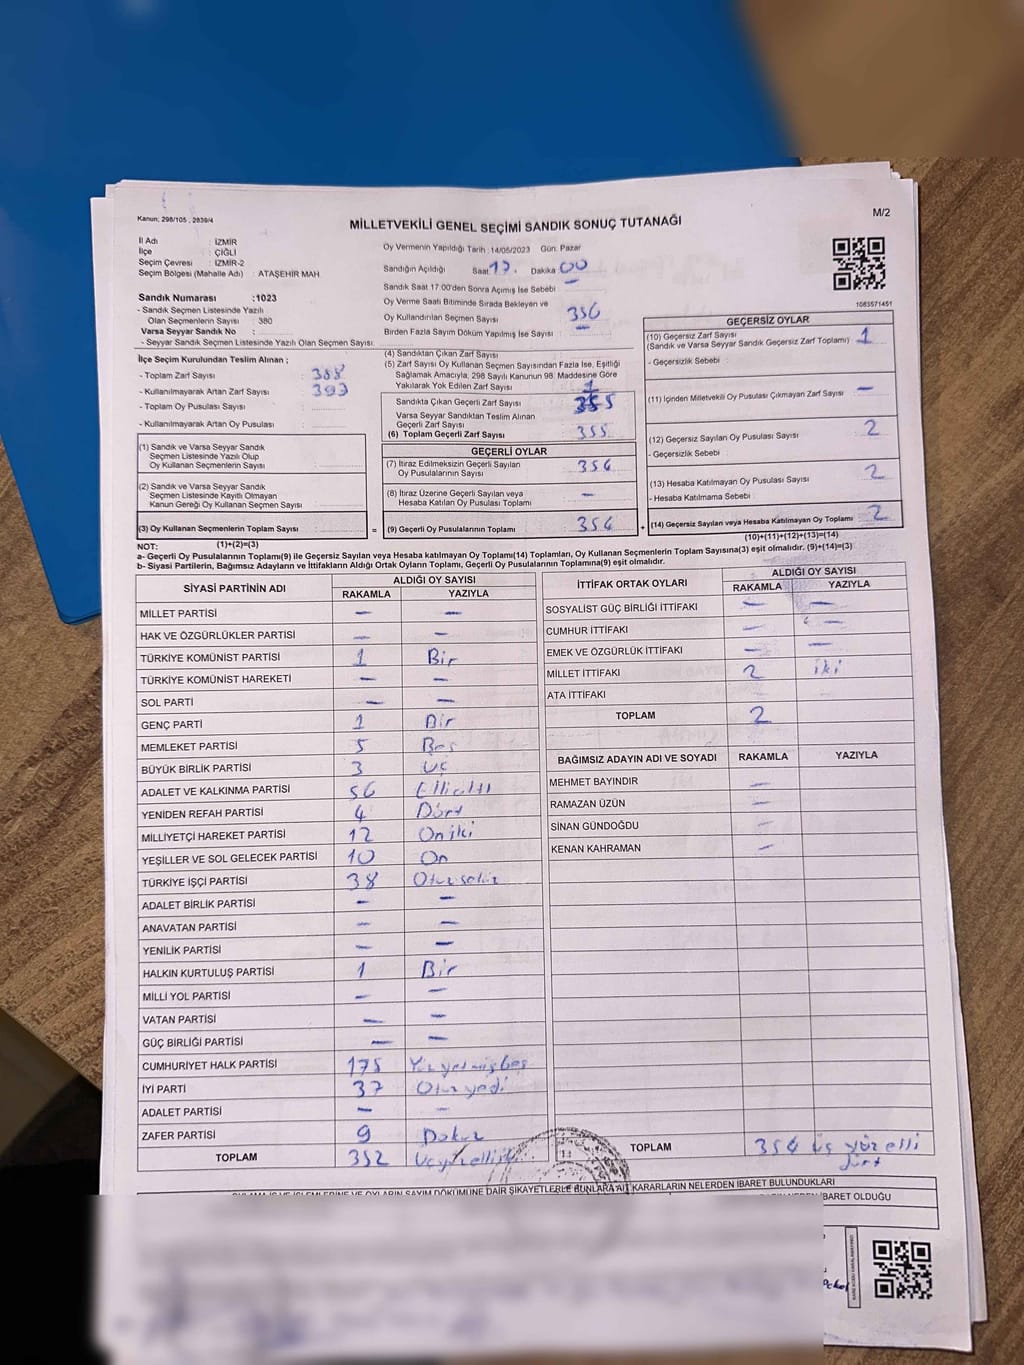 Kanun; 298/105 , 2839/4
M/2
MİLLETVEKİLİ GENEL SEÇİMİ SANDIK SONUÇ TUTANAĞI
İl Adı : İZMİR
İlçe : ÇİĞLİ
Seçim Çevresi : İZMİR-2
Seçim Bölgesi (Mahalle Adı) : ATAŞEHİR MAH
Sandık Numarası :1023
- Sandık Seçmen Listesinde Yazılı
Olan Seçmenlerin Sayısı : 380
Varsa Seyyar Sandık No :
- Seyyar Sandık Seçmen Listesinde Yazılı Olan Seçmen Sayısı:
İlçe Seçim Kurulundan Teslim Alınan ;
- Toplam Zarf Sayısı : 388
- Kullanılmayarak Artan Zarf Sayısı :
- Toplam Oy Pusulası Sayısı :
- Kullanılmayarak Artan Oy Pusulası :
(1) Sandık ve Varsa Seyyar Sandık
Seçmen Listesinde Yazılı Olup
Oy Kullanan Seçmenlerin Sayısı :
(2) Sandık ve Varsa Seyyar Sandık
Seçmen Listesinde Kayıtlı Olmayan
Kanun Gereği Oy Kullanan Seçmen Sayısı
(3) Oy Kullanan Seçmenlerin Toplam Sayısı =
(1)+(2)=(3)
Oy Vermenin Yapıldığı Tarih : 14/05/2023 Gün: Pazar
Sandığın Açıldığı Saat 17. Dakika : 00
Sandık Saat 17.00'den Sonra Açımış İse Sebebi : —
Oy Verme Saati Bitiminde Sırada Bekleyen ve
Oy Kullandırılan Seçmen Sayısı 356
Birden Fazla Sayım Döküm Yapılmış İse Sayısı : —
(4) Sandıktan Çıkan Zarf Sayısı
(5) Zarf Sayısı Oy Kullanan Seçmen Sayısından Fazla İse, Eşitliği
Sağlamak Amacıyla, 298 Sayılı Kanunun 98. Maddesine Göre
Yakılarak Yok Edilen Zarf Sayısı 1
Sandıkta Çıkan Geçerli Zarf Sayısı 355
Varsa Seyyar Sandıktan Teslim Alınan
Geçerli Zarf Sayısı
(6) Toplam Geçerli Zarf Sayısı 355
GEÇERLİ OYLAR
(7) İtiraz Edilmeksizin Geçerli Sayılan
Oy Pusulalarının Sayısı 354
(8) İtiraz Üzerine Geçerli Sayılan veya
Hesaba Katılan Oy Pusulası Toplamı —
(9) Geçerli Oy Pusulalarının Toplamı 354 +
1083571451
GEÇERSİZ OYLAR
(10) Geçersiz Zarf Sayısı
(Sandık ve Varsa Seyyar Sandık Geçersiz Zarf Toplamı) 1
- Geçersizlik Sebebi :
(11) İçinden Milletvekili Oy Pusulası Çıkmayan Zarf Sayısı —
(12) Geçersiz Sayılan Oy Pusulası Sayısı 2
- Geçersizlik Sebebi
(13) Hesaba Katılmayan Oy Pusulası Sayısı 2
- Hesaba Katılmama Sebebi
(14) Geçersiz Sayılan veya Hesaba Katılmayan Oy Toplamı 2
(10)+(11)+(12)+(13)=(14)
NOT:
a- Geçerli Oy Pusulalarının Toplamı(9) ile Geçersiz Sayılan veya Hesaba katılmayan Oy Toplamı(14) Toplamları, Oy Kullanan Seçmenlerin Toplam Sayısına(3) eşit olmalıdır. (9)+(14)=(3)
b- Siyasi Partilerin, Bağımsız Adayların ve İttifakların Aldığı Ortak Oyların Toplamı, Geçerli Oy Pusulalarının Toplamına(9) eşit olmalıdır.
SİYASİ PARTİNİN ADI ALDIĞI OY SAYISI
RAKAMLA YAZIYLA
MİLLET PARTİSİ — —
HAK VE ÖZGÜRLÜKLER PARTİSİ — —
TÜRKİYE KOMÜNİST PARTİSİ 1 Bir
TÜRKİYE KOMÜNİST HAREKETİ — —
SOL PARTİ — —
GENÇ PARTİ 1 Bir
MEMLEKET PARTİSİ 5 Beş
BÜYÜK BİRLİK PARTİSİ 3 Üç
ADALET VE KALKINMA PARTİSİ 56 Ellialtı
YENİDEN REFAH PARTİSİ 4 Dört
MİLLİYETÇİ HAREKET PARTİSİ 12 Oniki
YEŞİLLER VE SOL GELECEK PARTİSİ 10 On
TÜRKİYE İŞÇİ PARTİSİ 38 Otuzsekiz
ADALET BİRLİK PARTİSİ — —
ANAVATAN PARTİSİ — —
YENİLİK PARTİSİ — —
HALKIN KURTULUŞ PARTİSİ 1 Bir
MİLLİ YOL PARTİSİ — —
VATAN PARTİSİ — —
GÜÇ BİRLİĞİ PARTİSİ — —
CUMHURİYET HALK PARTİSİ 175 Yüzyetmişbeş
İYİ PARTİ 37 Otuzyedi
ADALET PARTİSİ — —
ZAFER PARTİSİ 9 Dokuz
TOPLAM 352 Üçyüzelliiki
İTTİFAK ORTAK OYLARI ALDIĞI OY SAYISI
RAKAMLA YAZIYLA
SOSYALİST GÜÇ BİRLİĞİ İTTİFAKI — —
CUMHUR İTTİFAKI — —
EMEK VE ÖZGÜRLÜK İTTİFAKI — —
MİLLET İTTİFAKI 2 iki
ATA İTTİFAKI
TOPLAM 2
BAĞIMSIZ ADAYIN ADI VE SOYADI RAKAMLA YAZIYLA
MEHMET BAYINDIR —
RAMAZAN ÜZÜN —
SİNAN GÜNDOĞDU —
KENAN KAHRAMAN —
TOPLAM 354 üç yüz elli
dört
DÖKÜMÜNE DAİR ŞİKAYETLERLE BUNLARA AİT KARARLARIN NELERDEN İBARET BULUNDUKLARI
İBARET OLDUĞU